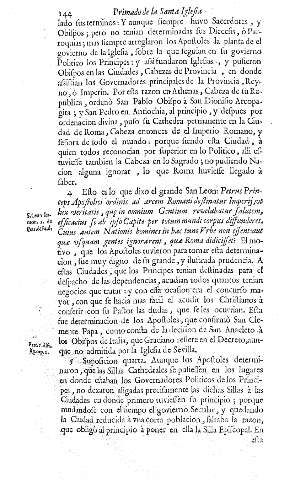 144 Primado de la Santa Iglesia
lados uterminos: Y aunque siempre huvo Sacerdotes, y
Obispos; pero no tenian determinadas sus Diecesis, ò Pa-
roquias; mas siempre arreglaron los Apostoles la planta de el
govierno de la Iglesia, sobre la que seguian en su govierno
Politico los Principes: y assi fundaron Iglesias, y pusieron
Obispos en las Ciudades, Cabezas de Provincia, en donde
assistian los Governadores principales de la Provincia, Rey-
no, ò Imperio. Por esta razon en Athenas, Cabeza de su Re-
publica, ordenò San Pablo Obispo à San Dionisio Arcopa-
gita; y San Pedro en Antiochia, al principio, y despues por
ordenacion divina, passò su Cathedra permanente en la Ciu-
dad de Roma, Cabeza entonces de el Imperio Romano, y
señora de todo el mundo: porque siendo esta Ciudad, à
quien todos reconocian por superior en lo Politico, alli es-
tuviesse tambien la Cabeza en lo Sagrado; no pudiendo Na-
cion alguna ignorar, lo que Roma huviesse llegado à
saber.
4 Esto es lo que dixo el grande San Leon: Petrus Prin-
ceps Apostolici ordinis ad arcem Romani destinatur Imperij, ut
lux veritatis, quæ in omnium Gentium revelabatur salutem,
efficacius se ab ipso Capite per totum mundi corpus diffunderet.
Cuius autem Nationis homines in hac tunc Vrbe non essent aut
quæ usquam gentes ignorarent, quæ Roma didicisset? El mo-
tivo, que los Apostoles tuvieron para tomar esta determina-
cion, fue muy digno de su grande, y ilustrada prudencia. A
estas Ciudades, que los Principes tenian destinadas para el
despacho de las dependencias, acudian todos quantos tenian
negocios que tratar: y con esta ocasion era el concurso ma-
yor, con que se hacia mas facil el acudir los Christianos à
conferir con su Pastor las dudas, que se les ocurrian. Esta
fue determinacion de los Apostoles, que confirmò San Cle-
mente Papa, como consta de la decision de San Anacleto à
los Obispos de Italia, que Graciano refiere en el Decreto, aun-
que no admitida por la Iglesia de Sevilla.
5 Suposicion quarta. Aunque los Apostoles determi-
naron, que las Sillas Cathedrales se pusiessen en los lugares
en donde estaban los Governadores Politicos de los Princi-
pes, no dexaron aligadas precisamente las dichas Sillas à las
Ciudades en donde primero tuviessen su principio; porque
mudandose con el tiempo el govierno Secular, y quedando
la Ciudad reducida à una corta poblacion, faltaba la razon,
que obligò al principio à poner en ella la Silla Episcopal. En
esta